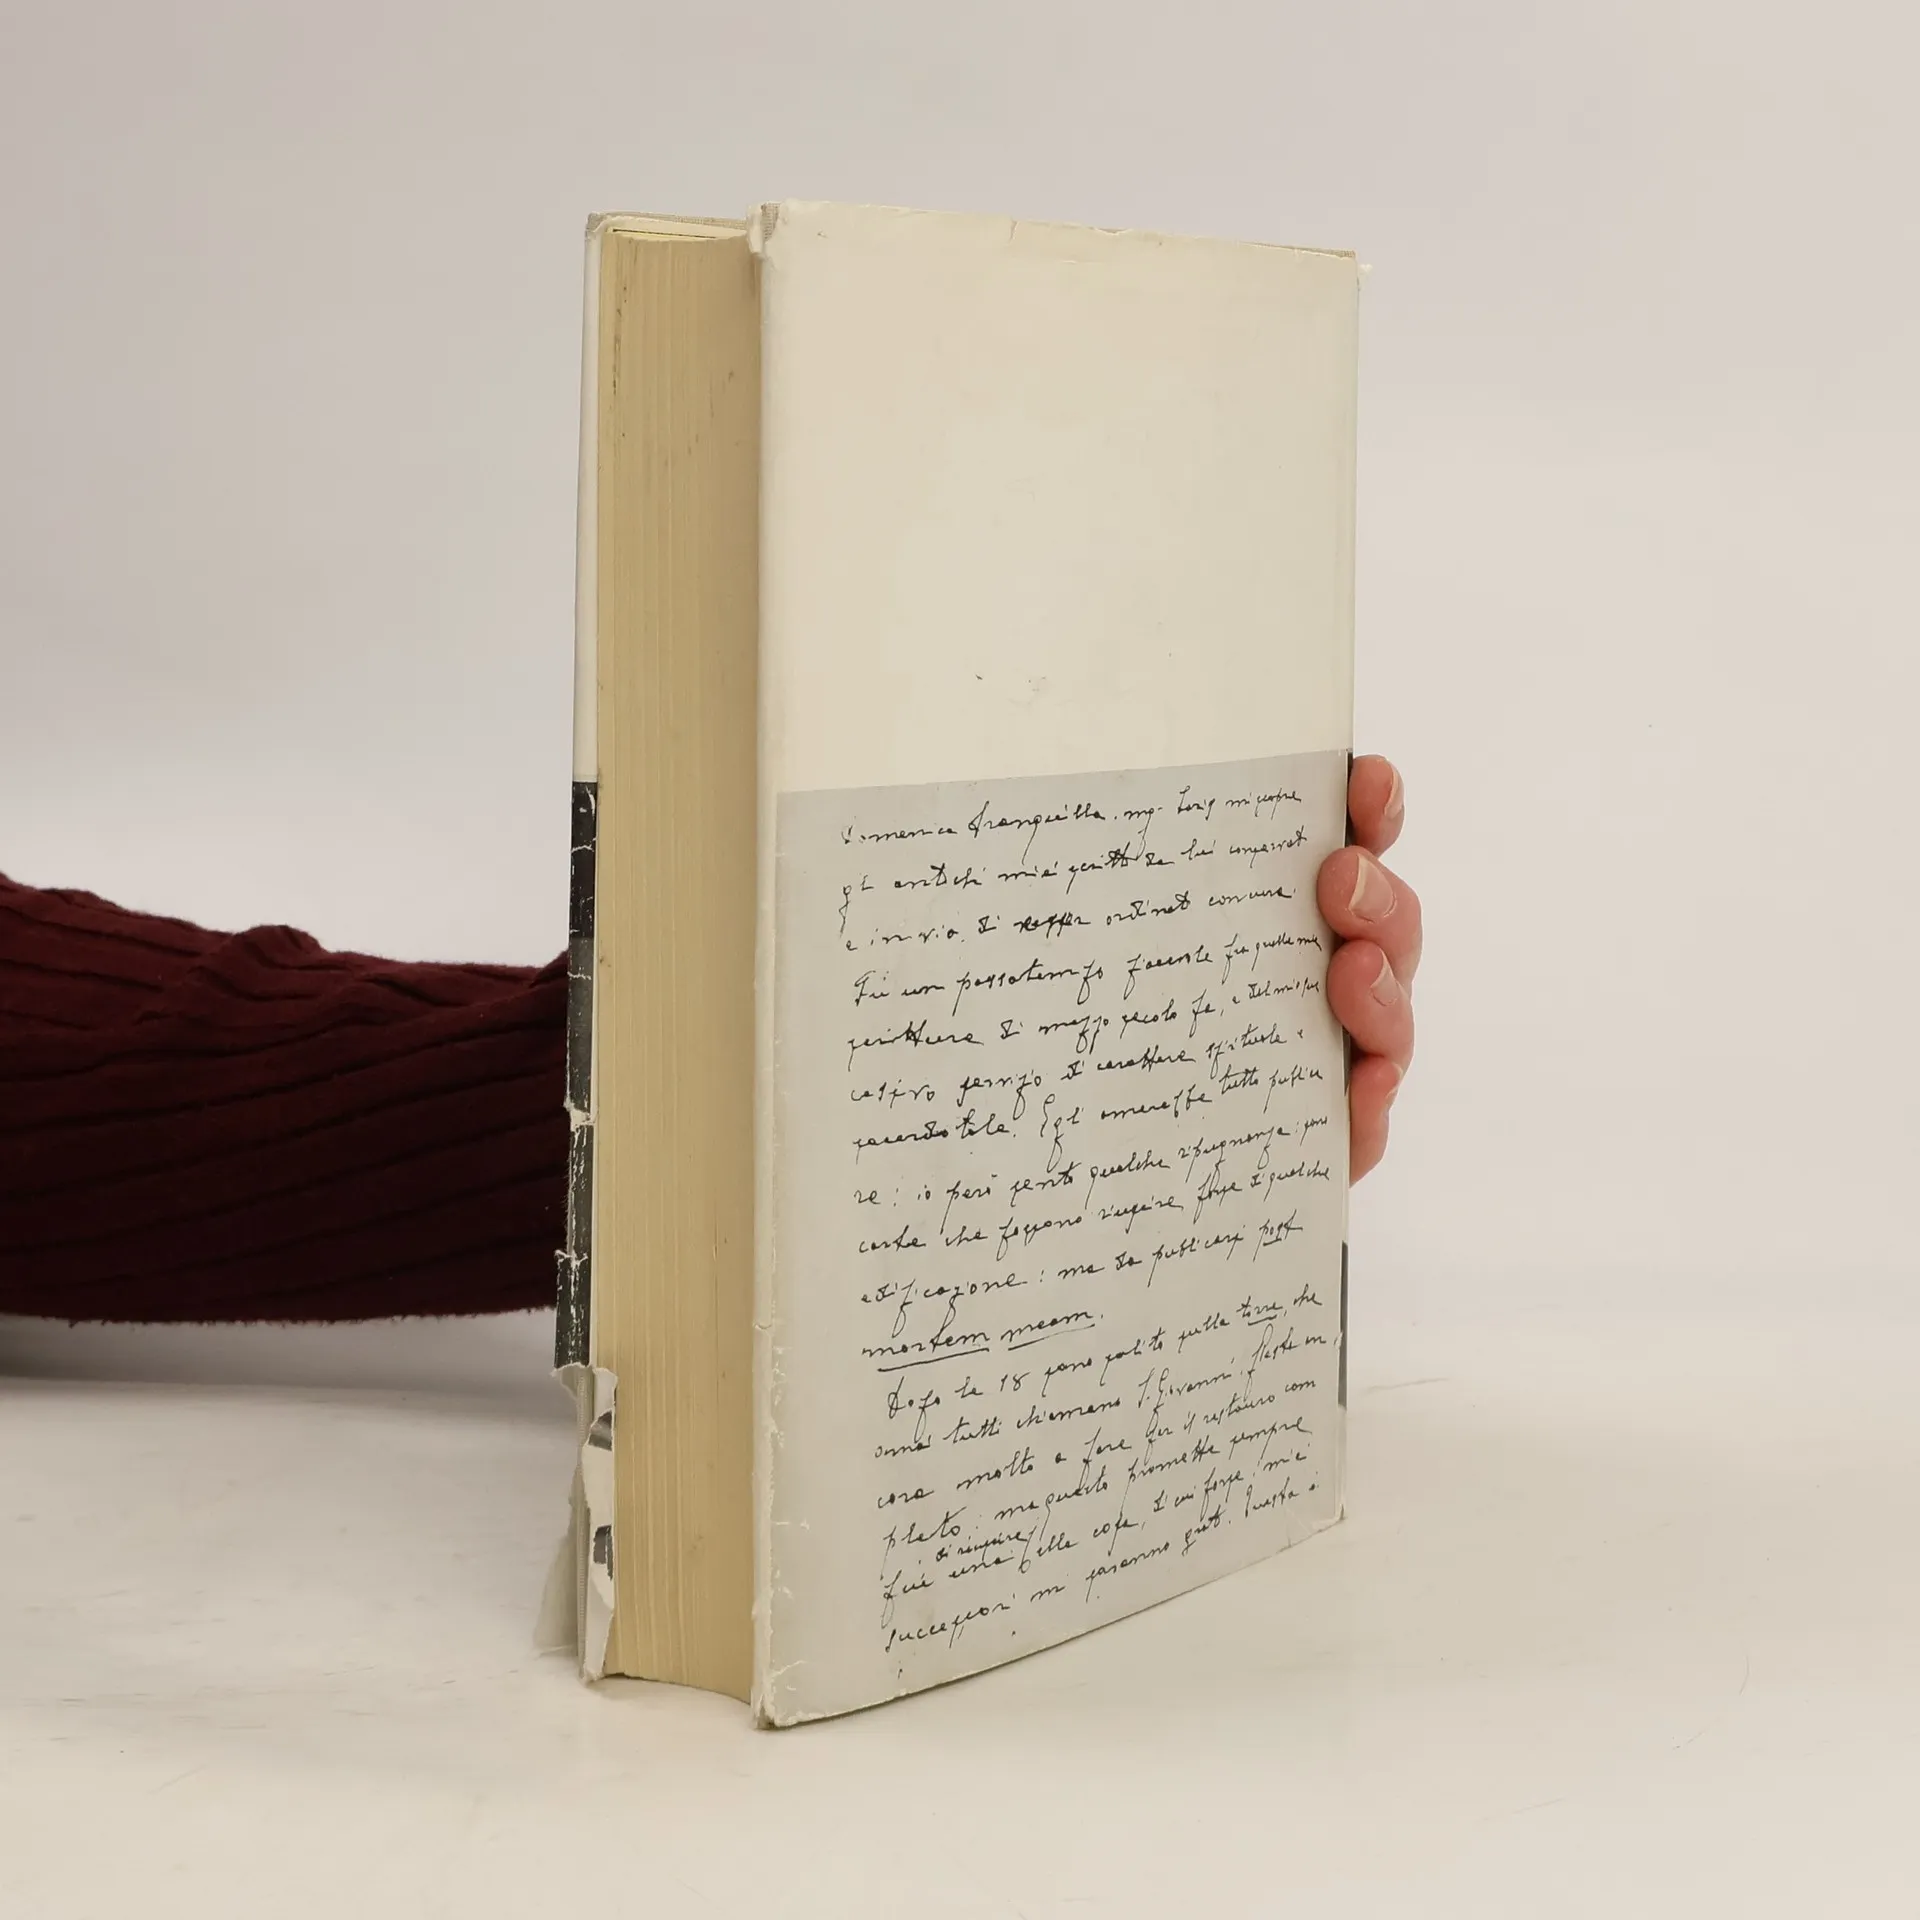 Domenica tranquilla. mgr. Loris mi scopre
gli antichi miei scritti da lui conservati
e in via di ordinati con cura.
Fu un passatempo piacevole fra quelle mie
scritture di mezzo secolo fa, e del mio suc
cessivo servizio di carattere spirituale e
sacerdotale. Egli amerebbe tutto publica
re: io però sento qualche ripugnanza: sono
carte che possono riuscire forse di qualche
edificazione: ma da publicarsi post
mortem meam.
Dopo le 18 sono salito sulla torre, che
ormai tutti chiamano S. Giovanni. Resta an
cora molto a fare per il restauro com
pleto: ma questo promette sempre
di riuscire
una bella cosa, di cui forse i miei
successori mi saranno grati. Questa è